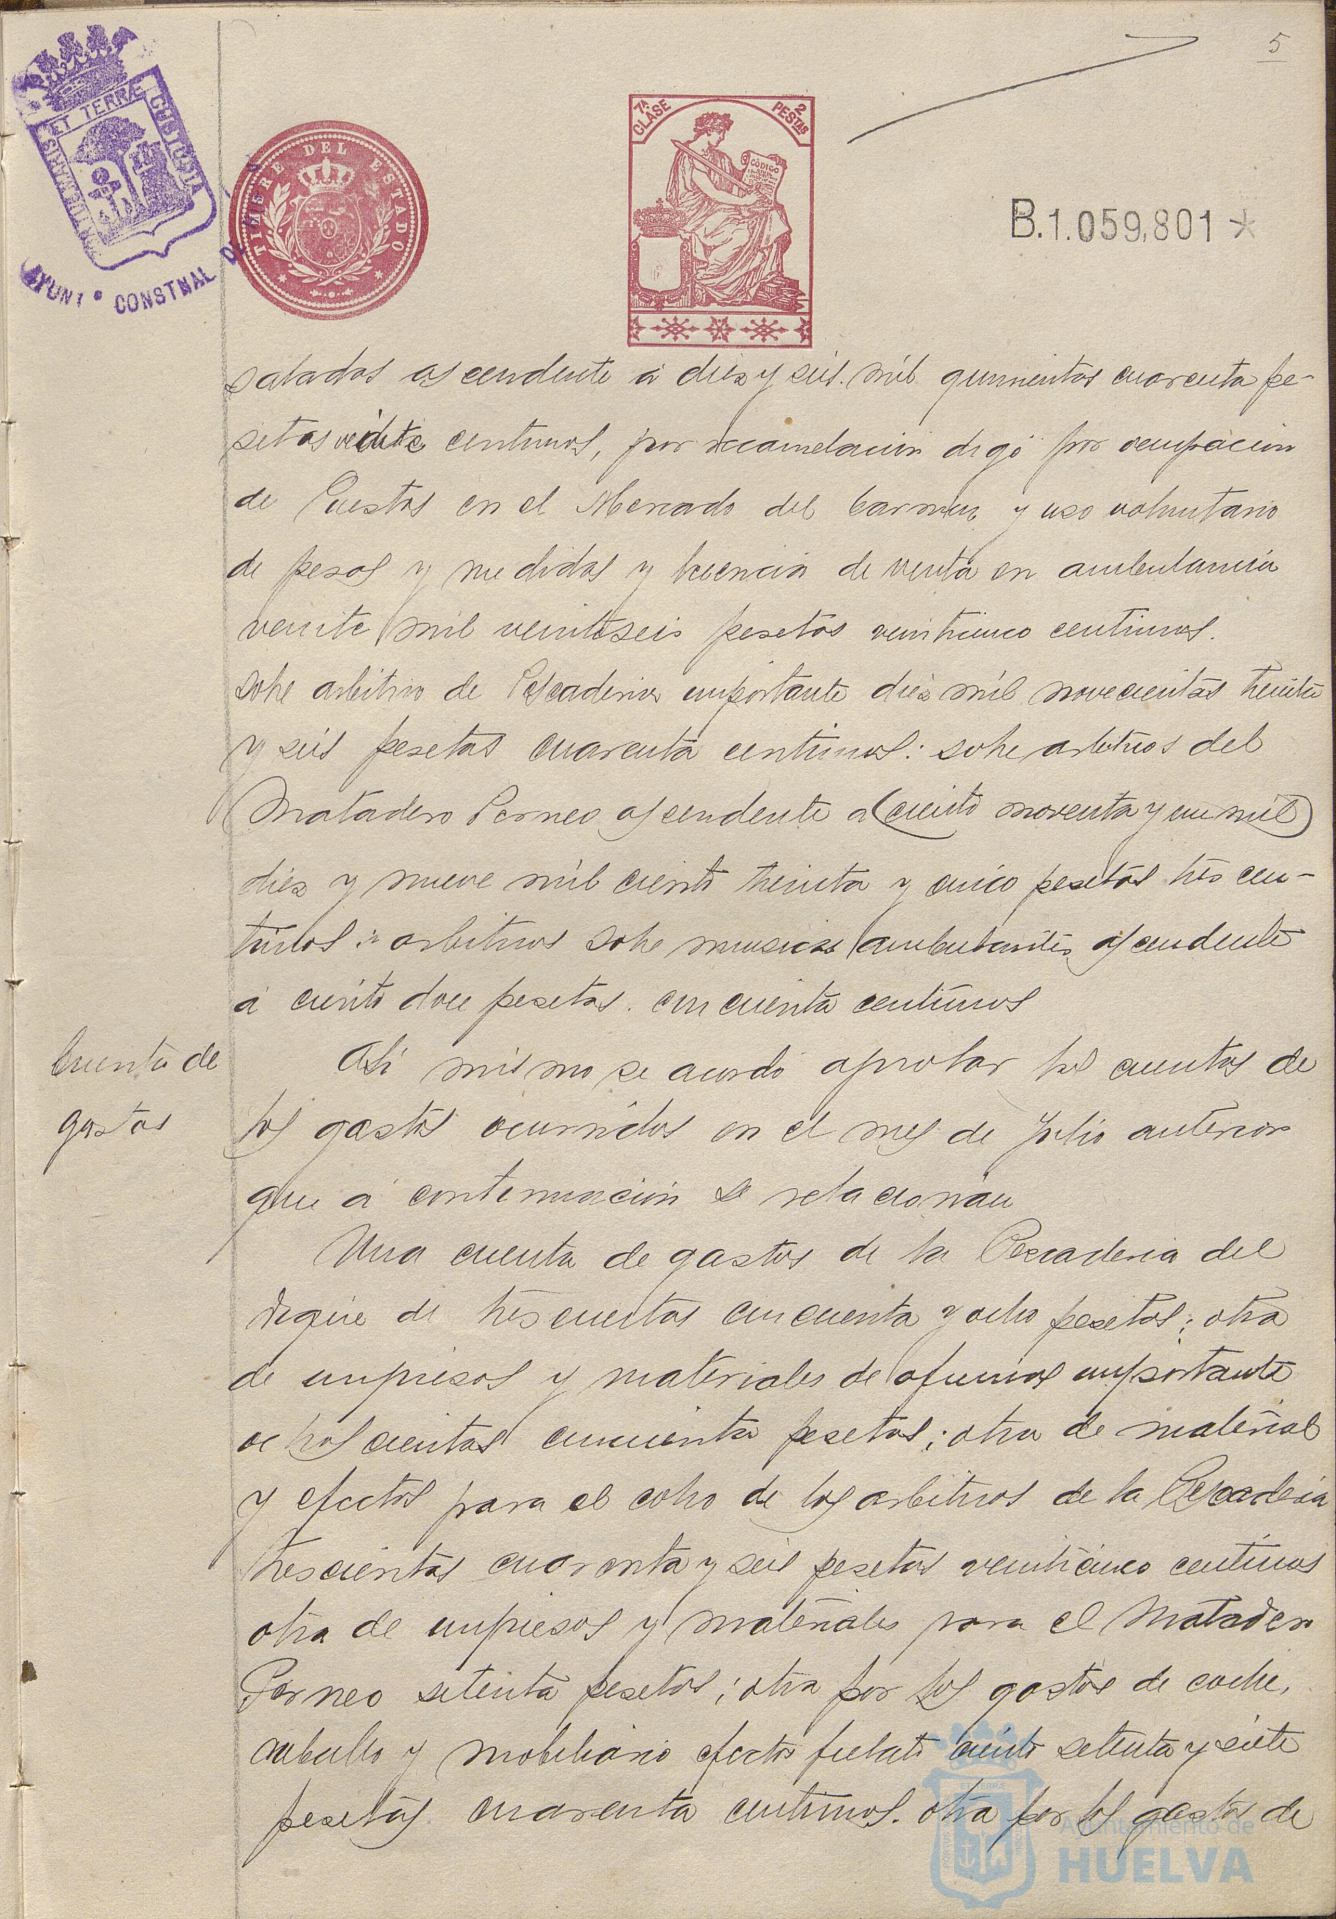 5
PORTUS MARIS ET TERRÆ CUSTODIA
AYUNTº CONSTNAL DE
TIMBRE DEL ESTADO
7ª CLASE
2 PESTAS
CODIGO
B.1.059,801 *
salados ascendente á diez y seis mil quinientos cuarenta pe-
setas veinte centimos, por recaudación digo por ocupación
de Puestos en el Mercado del Carmen y uso voluntario
de pesas y medidas y licencia de venta en ambulancia
veinte mil veintiseis pesetas veinticinco centimos.
sobre arbitrio de Pescaderia importante diez mil novecientas treinta
y seis pesetas cuarenta centimos: sobre arbitrios del
Matadero Porneo ascendente a (ciento noventa y un mil)
diez y nueve mil ciento treinta y cinco pesetas tres cen-
timos: arbitrios sobre musicas ambulantes ascendente
á ciento doce pesetas cincuenta centimos
Cuenta de
gastos
Asi mismo se acordó aprobar las cuentas de
los gastos ocurridos en el mes de Julio anterior
que á continuación se relacionan
Una cuenta de gastos de la Pescaderia del
de trescientas cincuenta y ocho pesetas; otra
de impresos y materiales de oficinas importante
ochocientas cincuenta pesetas; otra de material
y efectos para el cobro de los arbitrios de la Pescaderia
trescientas cuarenta y seis pesetas veinticinco centimos
otra de impresos y materiales para el Matadero
Porneo setenta pesetas; otra por los gastos de coche,
caballo y mobiliario efectos fielato ciento setenta y siete
pesetas cuarenta centimos. otra por los gastos de
Ayuntamiento de
HUELVA